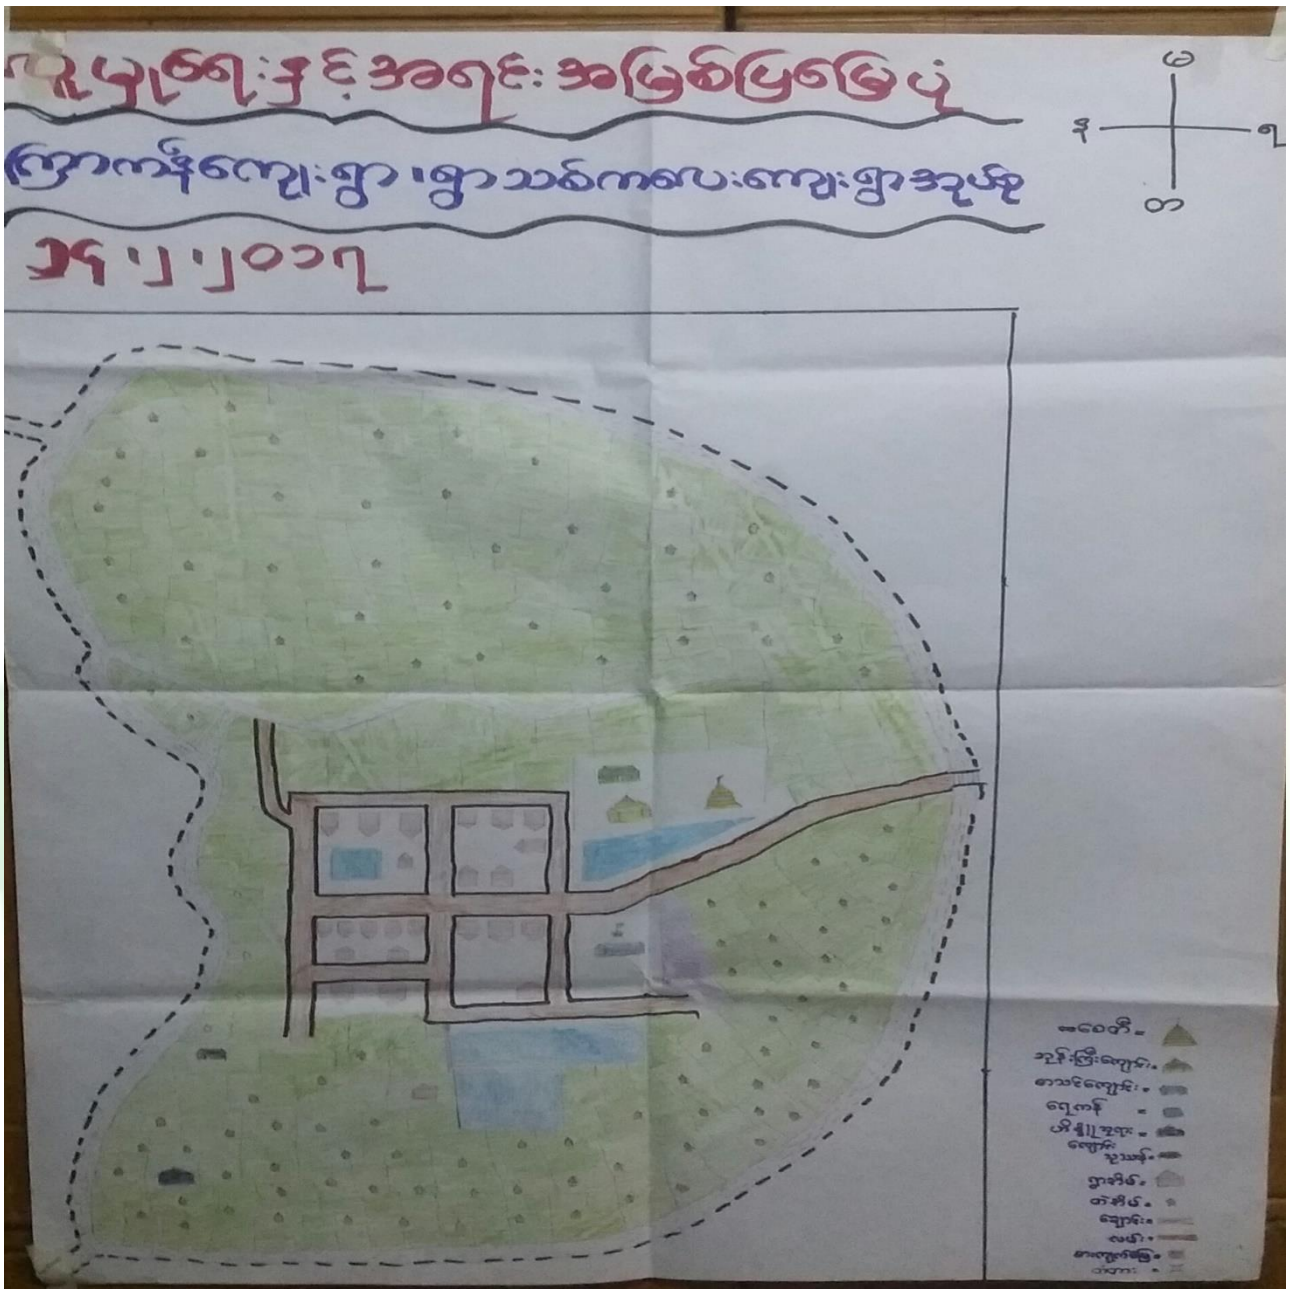 လူမှုရေးနှင့်အရင်းအမြစ်ပြမြေပုံ
မ
န
ရ
တ
ကြာကန်ကျေးရွာ၊ရွာသစ်ကလေးကျေးရွာအုပ်စု
၁၄.၂.၂၀၁၇
စေတီ =
ဘုန်းကြီးကျောင်း =
စာသင်ကျောင်း =
ရေကန် =
ကျောင်း
သုသာန် =
ရွာအိမ် =
တဲအိမ် =
ချောင်း =
လမ်း =
တံတား =